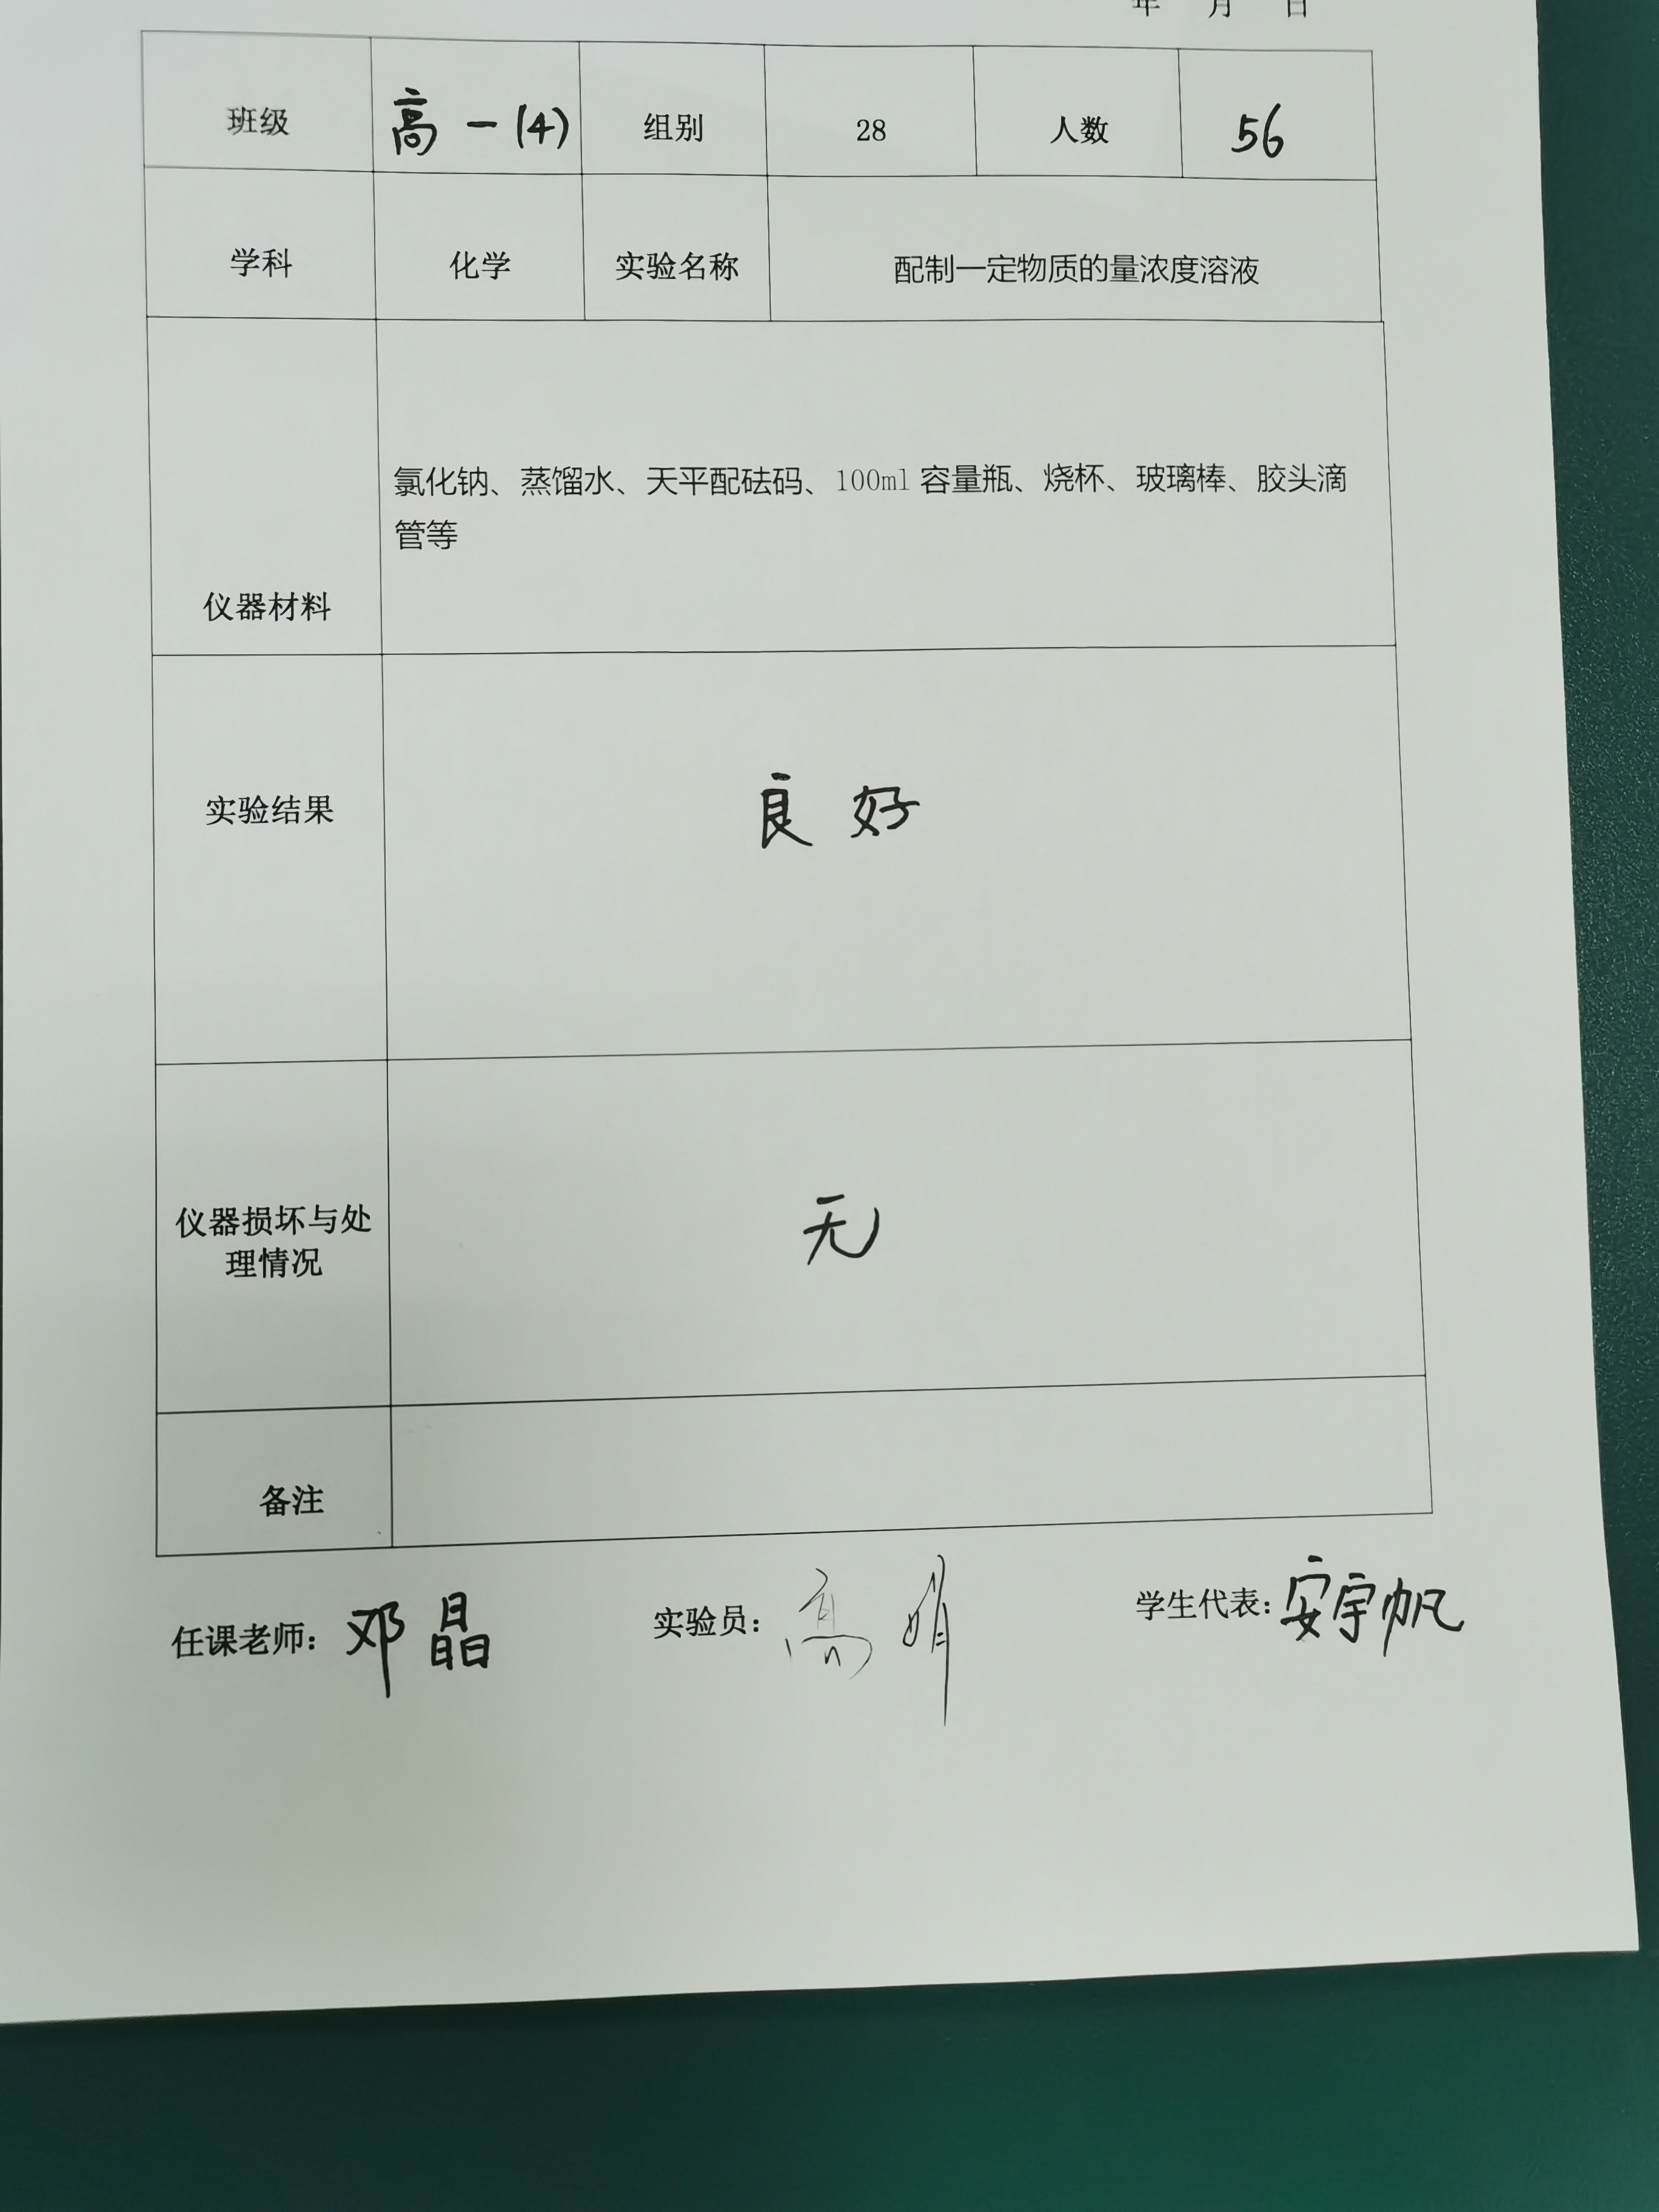 年 月 日
班级 高一(4) 组别 28 人数 56
学科 化学 实验名称 配制一定物质的量浓度溶液
氯化钠、蒸馏水、天平配砝码、100ml 容量瓶、烧杯、玻璃棒、胶头滴
管等
仪器材料
实验结果 良好
仪器损坏与处
理情况
无
备注
任课老师：邓晶 实验员：高娟 学生代表：安宇帆